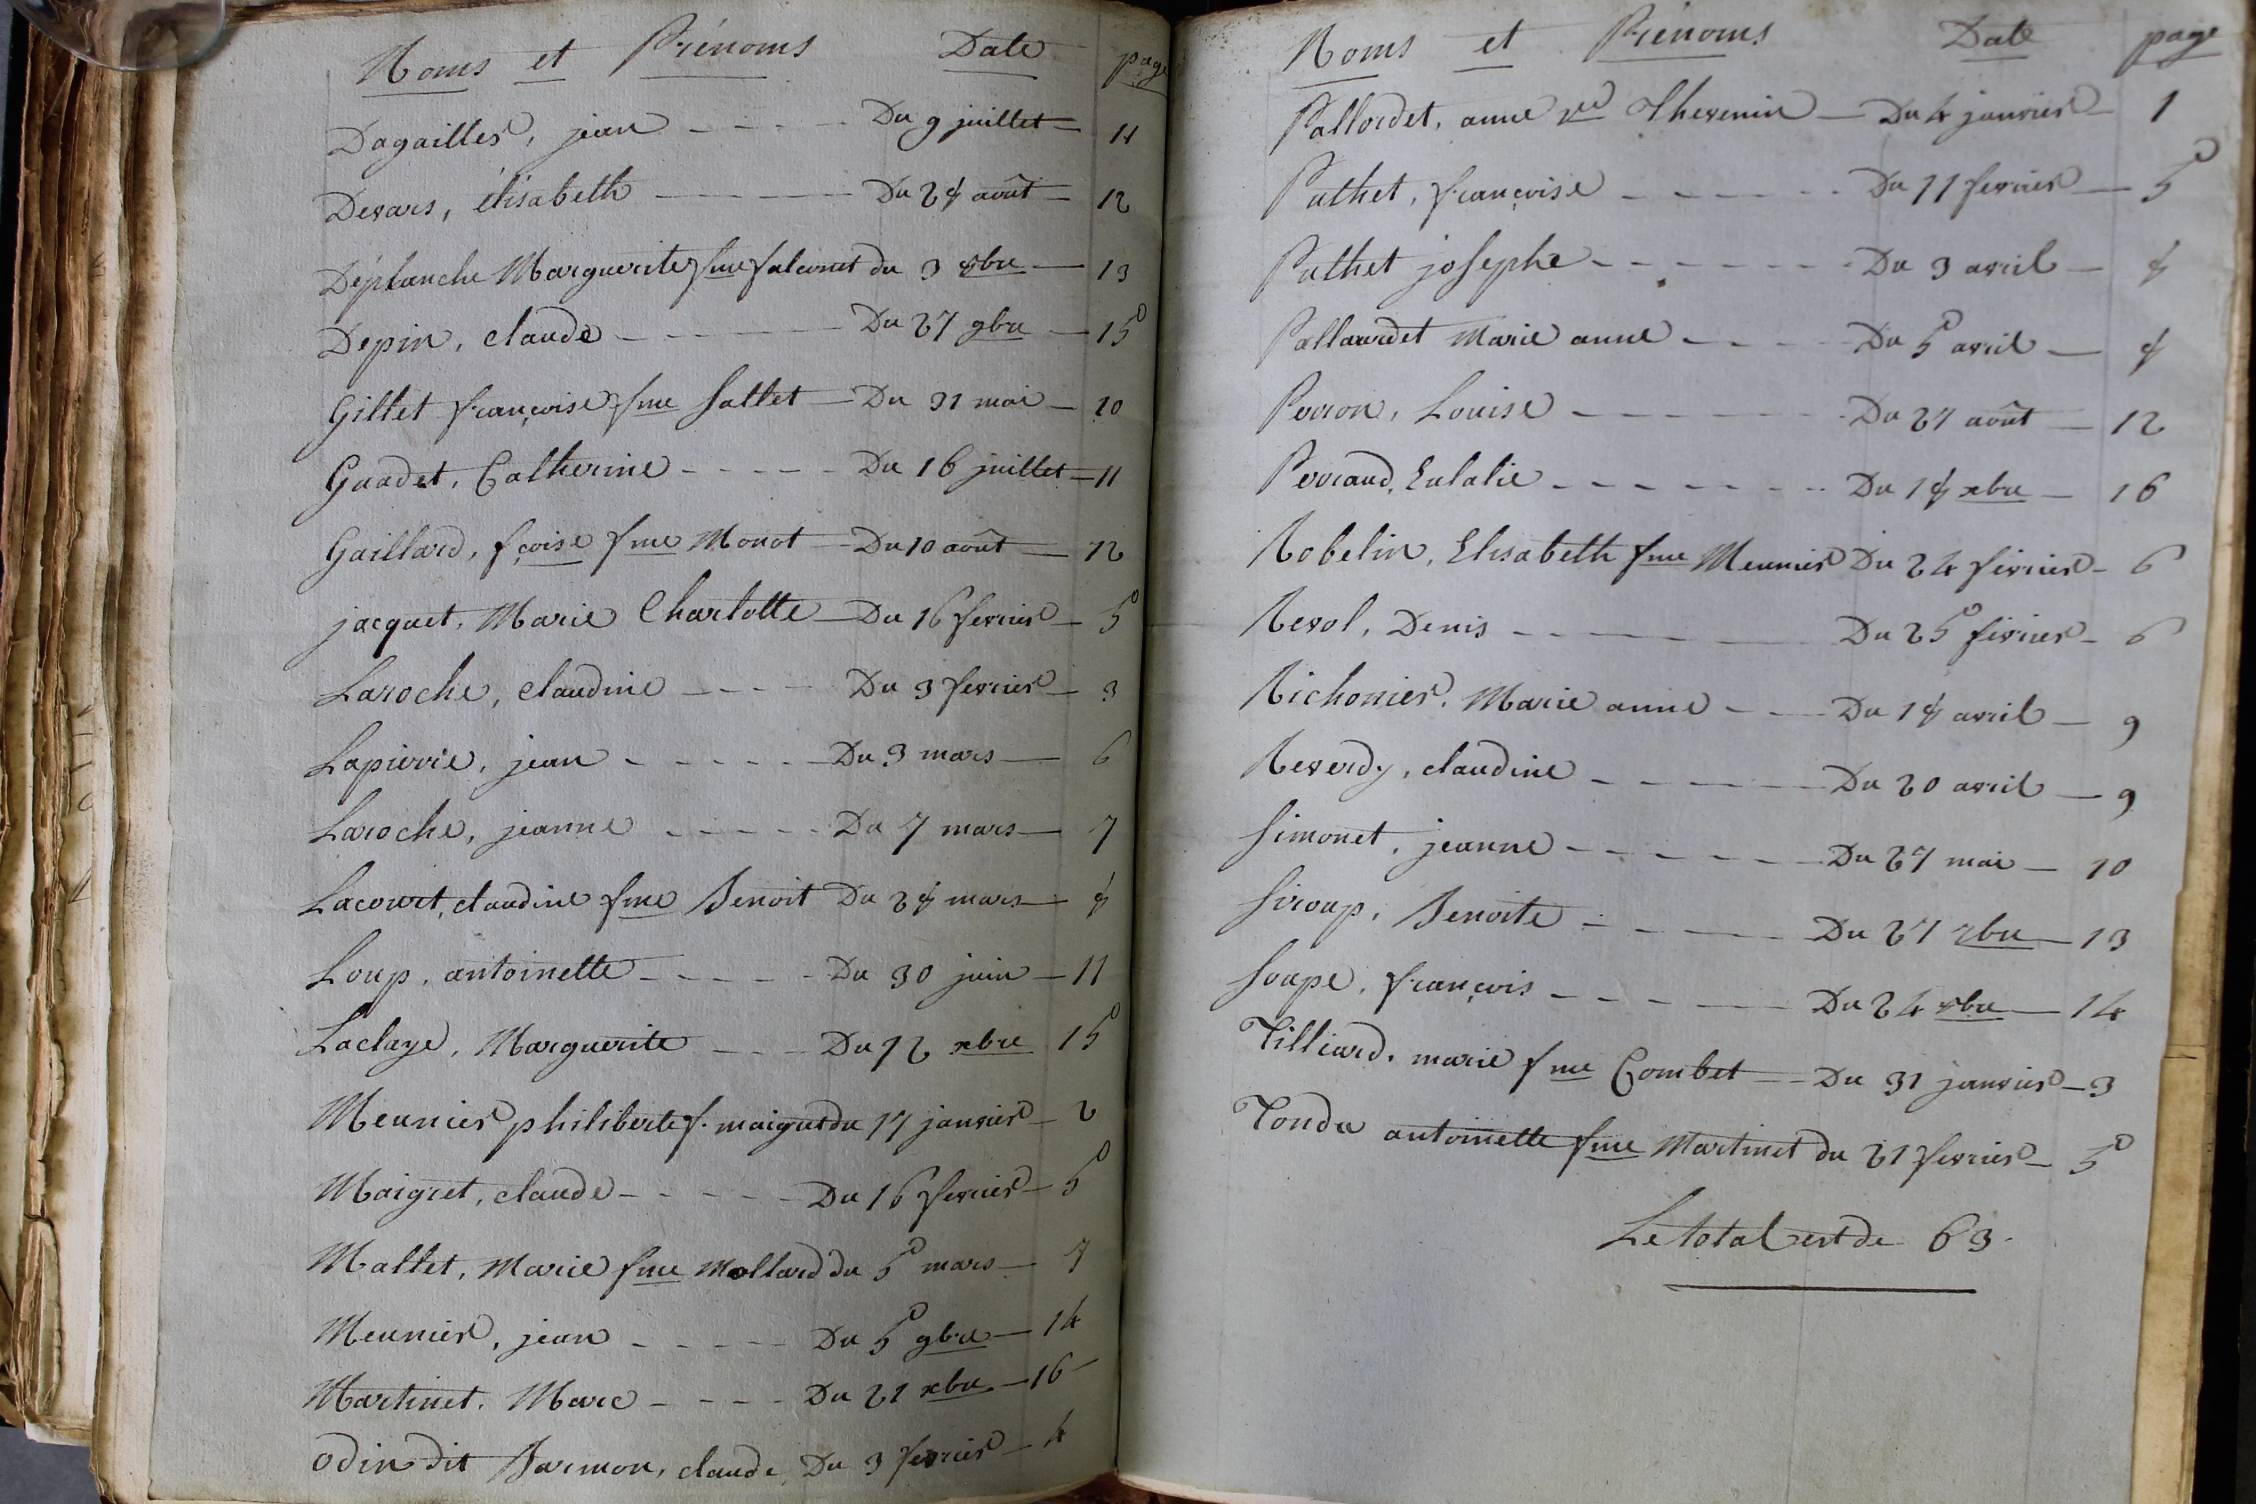 Noms et Prénoms Date page
Dagailler, jean Du 9 juillet 11
Devars, élisabeth Du 28 août 12
Déplanche Marguerite fme falconet du 3 8bre 13
Depin, claude Du 27 9bre 15
Gillet françoise fme Sallet Du 31 mai 10
Guadet, Catherine Du 16 juillet 11
Gaillard, fçoise fme Monot Du 10 août 12
jacquet, Marie Charlotte Du 16 fevrier 5
Laroche, claudine Du 3 fevrier 3
Lapierre, jean Du 3 mars 6
Laroche, jeanne Du 7 mars 7
Lacourt, claudine fme Benoit Du 28 mars 8
Loup, antoinette Du 30 juin 11
Laclaye, Marguerite Du 12 xbre 15
Meunier philiberte f. maigret du 17 janvier 2
Maigret, claude Du 16 fevrier 5
Mallet, Marie fme Mollard du 5 mars 7
Meunier, jean Du 5 9bre 14
Martinet, Marc Du 21 xbre 16
Odin dit Barmon, claude, Du 3 fevrier 4
Noms et Prénoms Date page
Pallordet, anne ve Thevenin Du 4 janvier 1
Puthet, françoise Du 11 fevrier 5
Puthet josephe Du 3 avril 8
Pallaurdet Marie anne Du 5 avril 8
Perron, Louise Du 27 août 12
Perraud, Eulalie Du 18 xbre 16
Robelin, Elisabeth fme Meunier Du 24 février 6
Revol, Denis Du 25 février 6
Richonier, Marie anne Du 18 avril 9
Reverdy, claudine Du 20 avril 9
Simonet, jeanne Du 27 mai 10
Siroup, Benoite Du 27 7bre 13
Soupe, françois Du 24 8bre 14
Tilliard, marie fme Combet Du 31 janvier 3
Tondu antoinette fme Martinet du 21 fevrier 5
Le total est de 63.